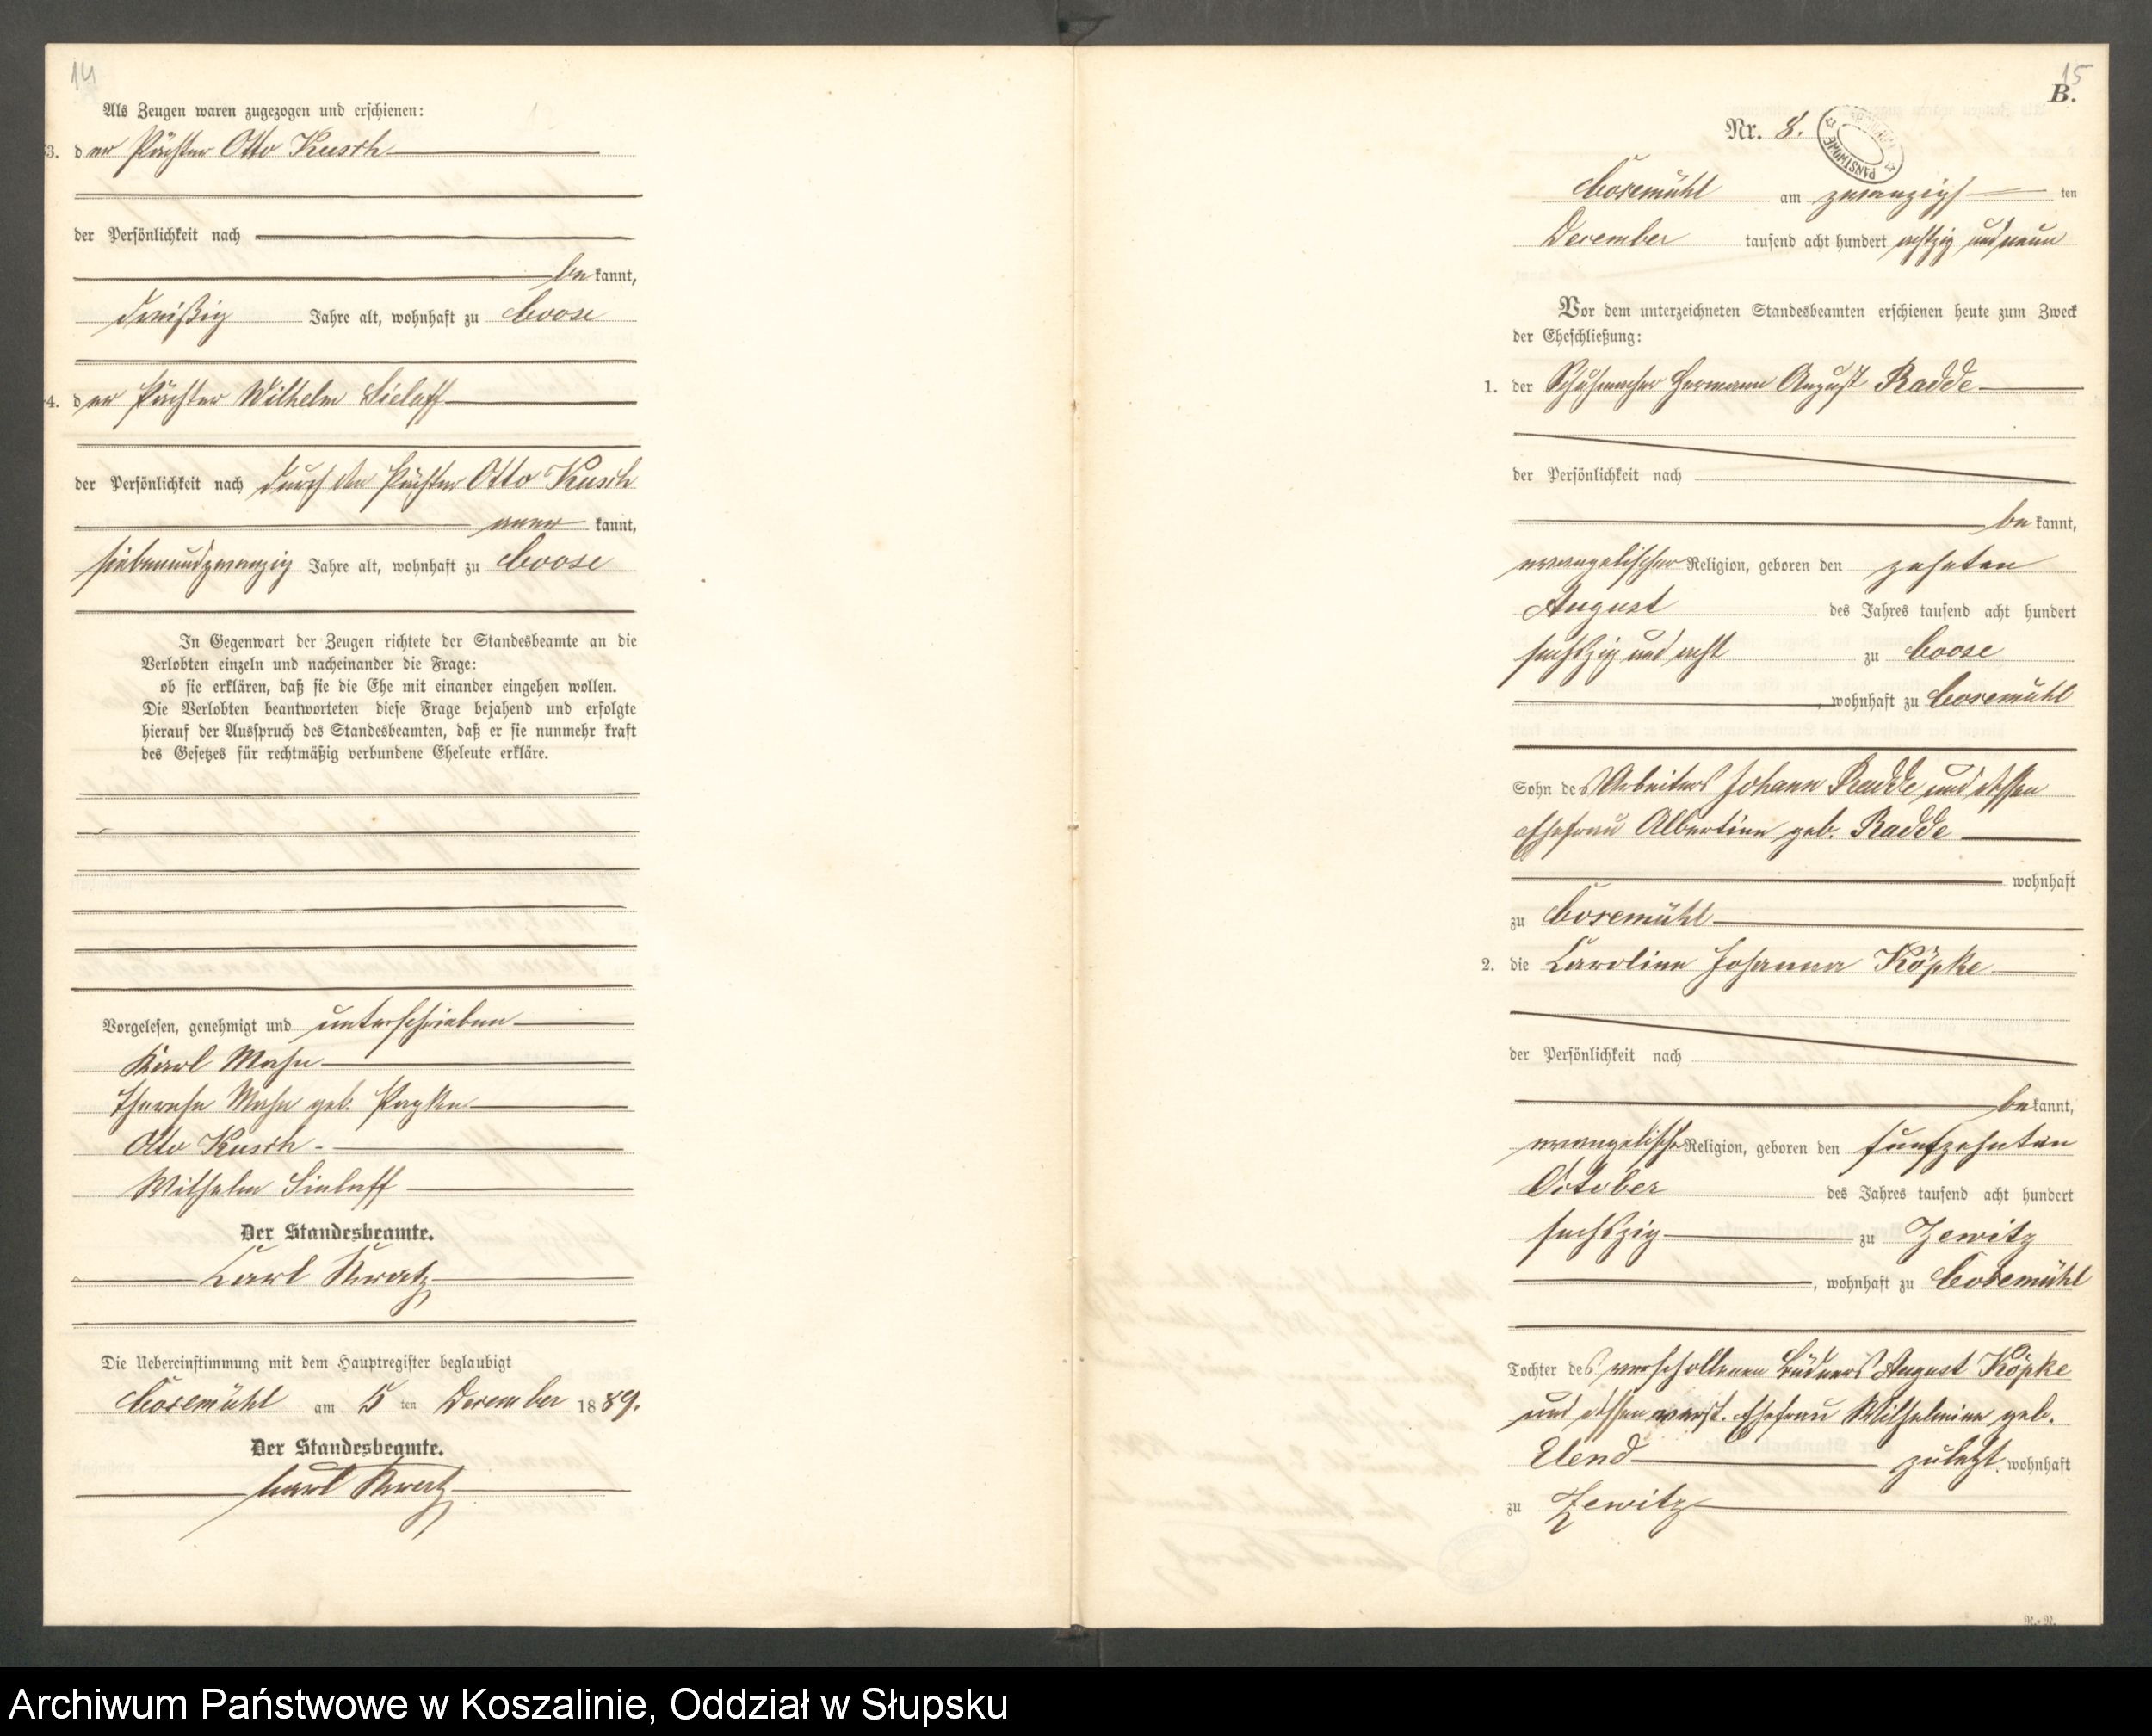 14
Als Zeugen waren zugezogen und erschienen:
3. der Pächter Otto Kusch
der Persönlichkeit nach
bekannt,
dreißig Jahre alt, wohnhaft zu Coose
4. der Pächter Wilhelm Sielaff
der Persönlichkeit nach durch den Pächter Otto Kusch
anerkannt,
siebenundzwanzig Jahre alt, wohnhaft zu Coose
In Gegenwart der Zeugen richtete der Standesbeamte an die
Verlobten einzeln und nacheinander die Frage:
ob sie erklären, daß sie die Ehe mit einander eingehen wollen.
Die Verlobten beantworteten diese Frage bejahend und erfolgte
hierauf der Ausspruch des Standesbeamten, daß er sie nunmehr kraft
des Gesetzes für rechtmäßig verbundene Eheleute erkläre.
Vorgelesen, genehmigt und unterschrieben
Karl Mahn
Therese Mahn geb. Papke
Otto Kusch
Wilhelm Sielaff
Der Standesbeamte.
Carl
Die Uebereinstimmung mit dem Hauptregister beglaubigt
Cosemühl am 5 ten December 1889.
Der Standesbeamte.
Carl
15
B.
Nr. 8.
Cosemühl am zwanzigsten
December tausend acht hundert achtzig und neun
Vor dem unterzeichneten Standesbeamten erschienen heute zum Zweck
der Eheschließung:
1. der Schuhmacher Hermann August Radde
der Persönlichkeit nach
bekannt,
evangelischer Religion, geboren den zehnten
August des Jahres tausend acht hundert
sechszig und acht zu Coose
, wohnhaft zu Cosemühl
Sohn des Arbeiters Johann Radde und dessen
Ehefrau Albertine geb. Radde
wohnhaft
zu Cosemühl
2. die Caroline Johanna Köpke
der Persönlichkeit nach
bekannt,
evangelischer Religion, geboren den fünfzehnten
October des Jahres tausend acht hundert
sechszig zu Zewitz
, wohnhaft zu Cosemühl
Tochter des verschollenen Büdners August Köpke
und dessen verst. Ehefrau Wilhelmine geb.
Elend zuletzt wohnhaft
zu Zewitz
Archiwum Państwowe w Koszalinie, Oddział w Słupsku